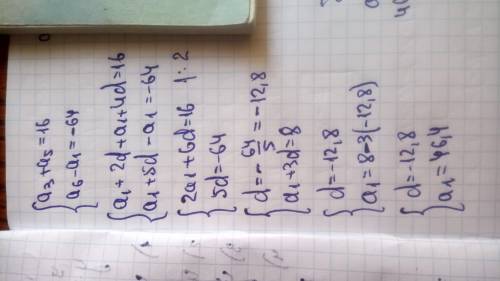 a3+a5=16
a6-a1=-64
a1+2d+a1+4d=16
a1+5d-a1=-64
2a1+6d=16 |:2
5d=-64
d=-64/5=-12,8
a1+3d=8
d=-12,8
a1=8-3(-12,8)
d=-12,8
a1=46,4